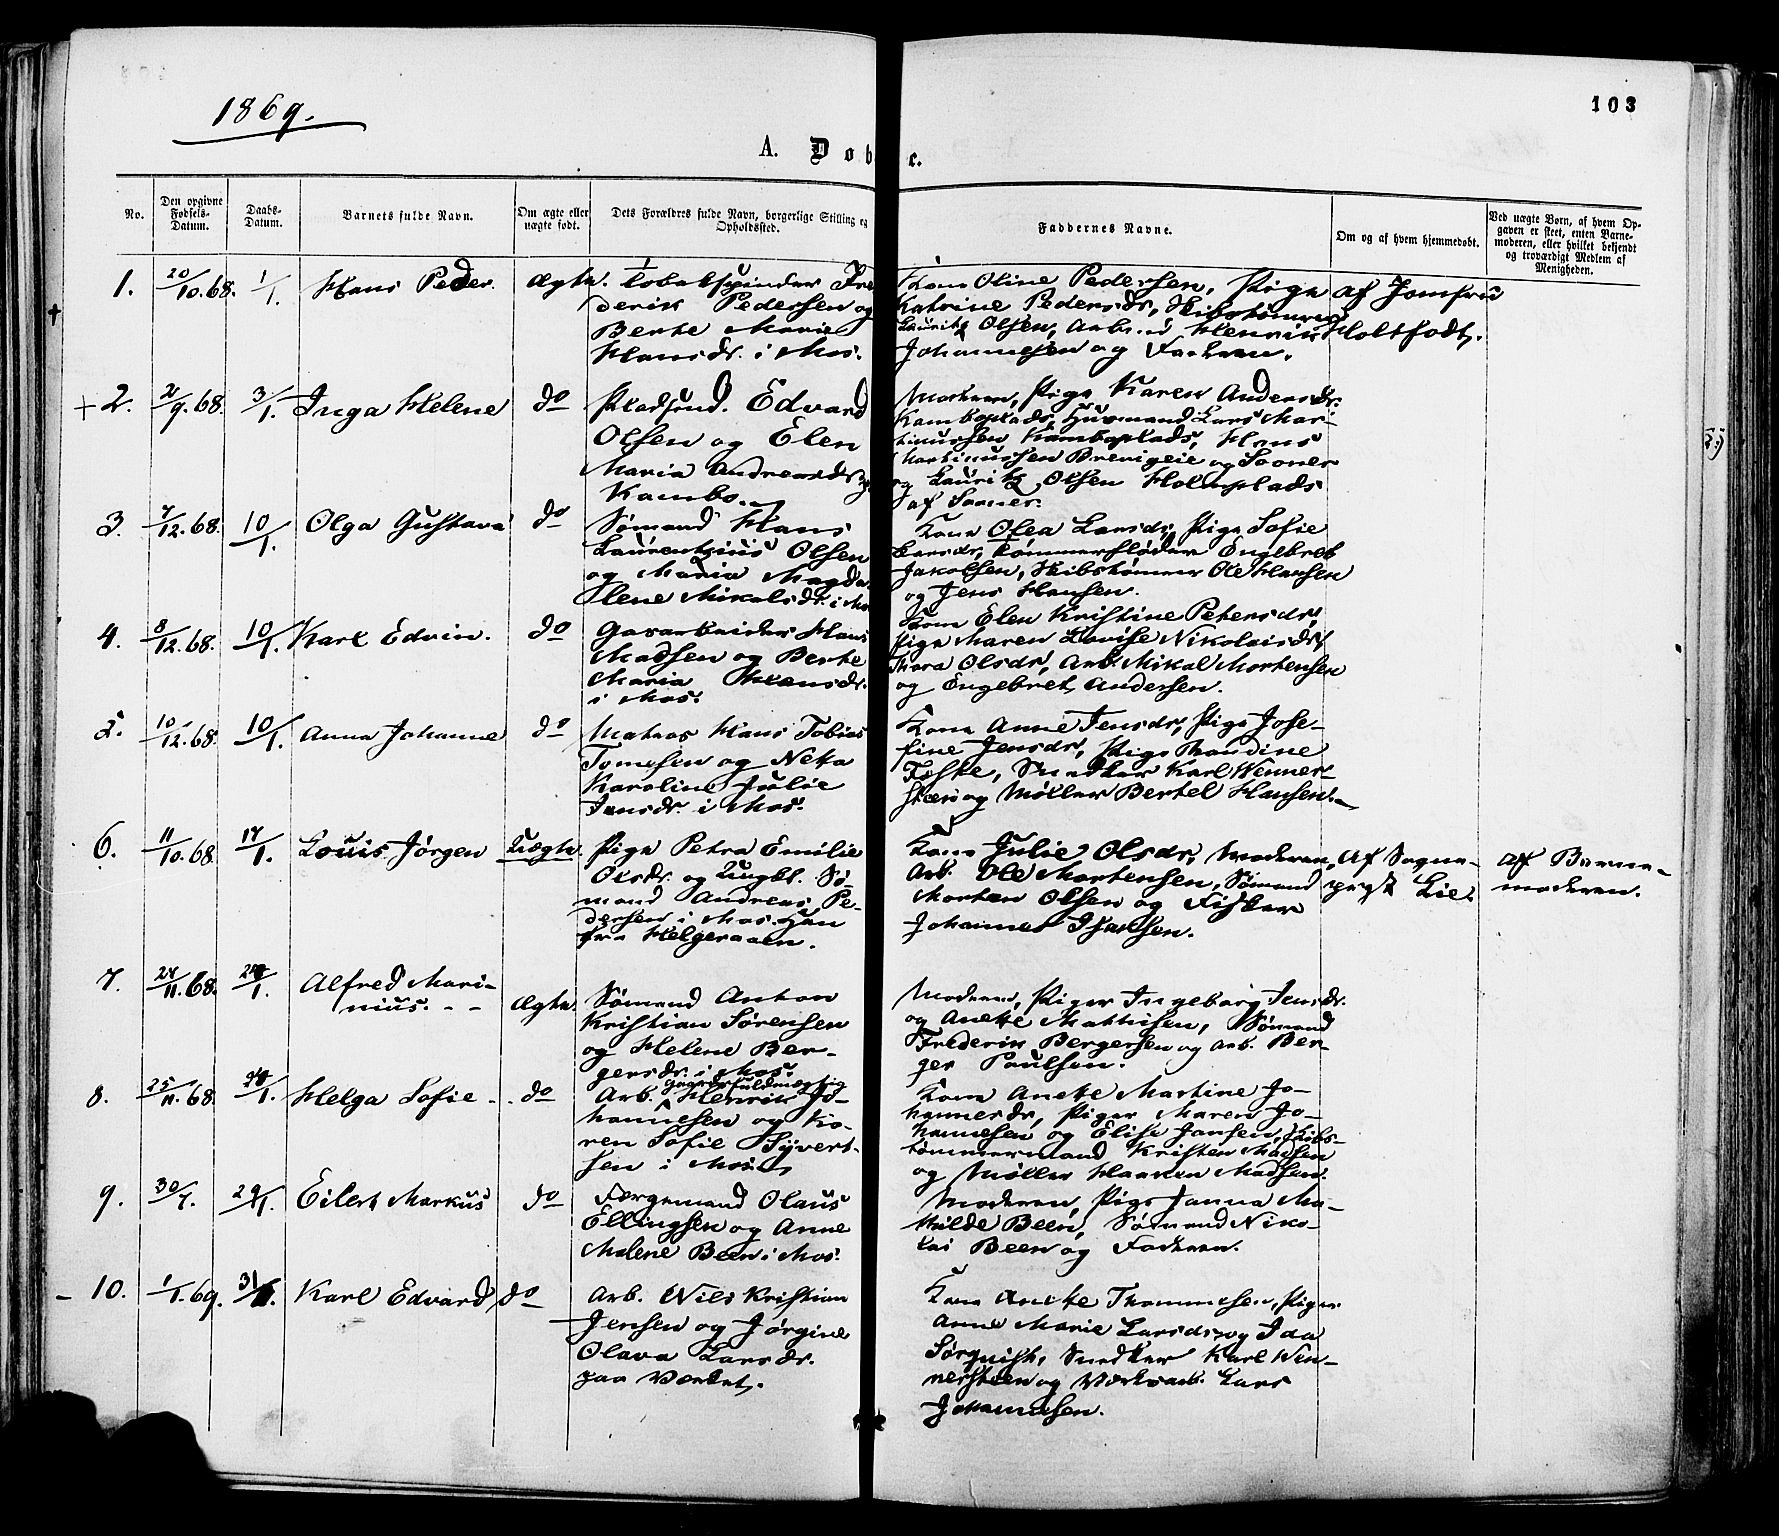 1869.
103
A. Døbte.
No.
Den opgivne Fødsels-Datum.
Daabs-Datum.
Barnets fulde Navn.
Om ægte eller uægte født.
Dets Forældres fulde Navn, borgerlige Stilling og Opholdssted.
Faddernes Navne.
Om og af hvem hjemmedøbt.
Ved uægte Børn, af hvem Opgaven er skeet, enten Barnemoderen, eller hvilket bekjendt og troværdigt Medlem af Menigheden.
1. 20/10.68. 1/1. Hans Peder. Ægte.
Tobakspinder Fre
derik Pedersen og
Berte Marie
Hansdr. i Mos.
Kone Oline Pedersen, Pige
Katrine Pedersdr, Skibstømrer
Laurits Olsen, Arb. Henrik
Johannesen og Faderen.
af Jomfru
Holtfodt.
+ 2. 2/9.68. 3/1. Inga Helene do
Pladsmd. Edvard
Olsen og Elen
Maria Andreasdr
Kambo.
Moderen, Pige Karen Andersdr.
Kamboplads, Husmand Lars Mar-
tinussen Kamboplads, Hans
Martinussen Brevigeie og Sooner
og Laurits Olsen Holmplads
af Sooner.
3. 7/12.68. 10/1. Olga Gustava do
Sømand Hans
Laurentzius Olsen
og Maria Magda
lene Mikelsdr. i Mos
Kone Olea Larsdr, Pige Sofie
Larsdr, Tømmerfløder Engebret
Jakobsen, Skibstømrer Ole Hansen
og Jens Hansen.
4. 8/12.68. 10/1. Karl Edvin. do
Gasarbeider Hans
Madsen og Berte
Maria Hansdr.
i Mos.
Kone Elen Kristine Petersdr,
Pige Maren Lovise Nikolaisdr,
Thora Olsdr, Arb. Mikal Mortensen
og Engebret Andersen.
5. 10/12.68. 10/1. Anna Johanne do
Matros Hans Tobias
Tomesen og Neta
Karoline Julie
Jensdr. i Mos.
Kone Anne Jensdr, Pige Jose-
fine Jensdr, Pige Thandine
Foske, Snedker Karl Wenner-
steen og Møller Bertel Hansen.
6. 11/10.68. 17/1. Louis Jørgen Uægte.
Pige Petra Emilie
Olsdr. og Ungkl. Sø
mand Andreas Pe-
dersen i Mos. Han
fra Helgeraaen.
Kone Julie Olsdr, Moderen,
Arb. Ole Mortensen, Sømand
Morten Olsen og Fisker
Johannes Isaksen.
Af Sogne-
prest Lie.
Af Barne-
moderen.
7. 24/11.68. 24/1. Alfred Mari-
nius. Ægte.
Sømand Anton
Kristian Sørensen
og Helene Ber-
gersdr. i Mos.
Moderen, Piger Ingeborg Jensdr.
og Anette Mathisen, Sømand
Frederik Bergersen og Arb. Ber-
ger Paulsen.
8. 25/11.68. 24/1. Helga Sofie do
gaardsfuldmægtig
Arb. Henrik Jo-
hannesen og Ka-
ren Sofie Syvert-
sen i Mos.
Kone Anette Martine Jo-
hannesdr, Piger Maren Jo-
hannesen og Elise Jansen, Skibs-
tømmermand Kristen Madsen
og Møller Hannen Madsen.
9. 30/7. 29/1. Eilert Markus do
Færgemand Olaus
Ellingsen og Anne
Malene Been i Mos.
Moderen, Pige Janna Ma-
thilde Been, Sømand Niko-
lai Been og Faderen.
10. 1/1.69. 31/1. Karl Edvard do
Arb. Nils Kristian
Jensen og Jørgine
Olava Larsdr.
paa Værket.
Kone Anette Thommesen, Piger
Anne Marie Larsdr og Ida
Sørquist, Snedker Karl Wen-
nersteen og Værksarb. Lars
Johannesen.